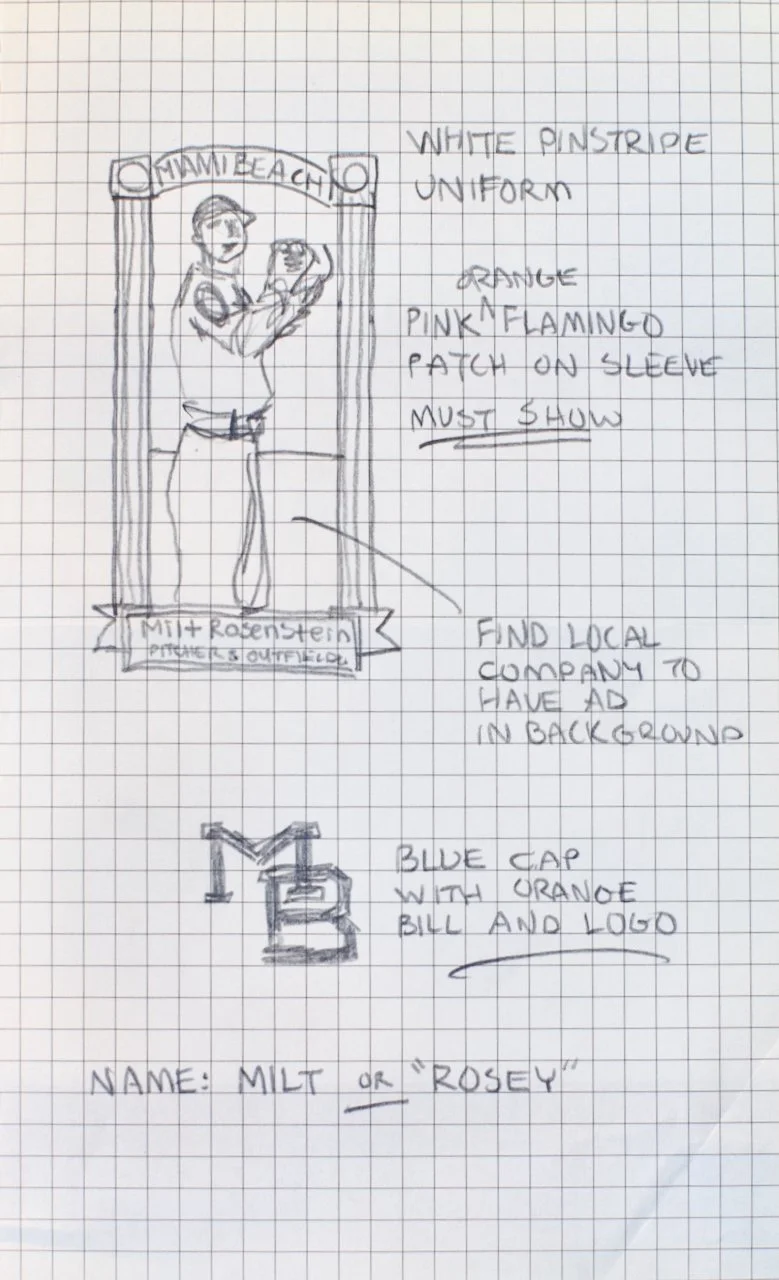 MIAMI BEACH
WHITE PINSTRIPE
UNIFORM
ORANGE
PINK ^ FLAMINGO
PATCH ON SLEEVE
MUST SHOW
Milt Rosenstein
PITCHER & OUTFIELD
FIND LOCAL
COMPANY TO
HAVE AD
IN BACKGROUND
MB
BLUE CAP
WITH ORANGE
BILL AND LOGO
NAME: MILT OR "ROSEY"